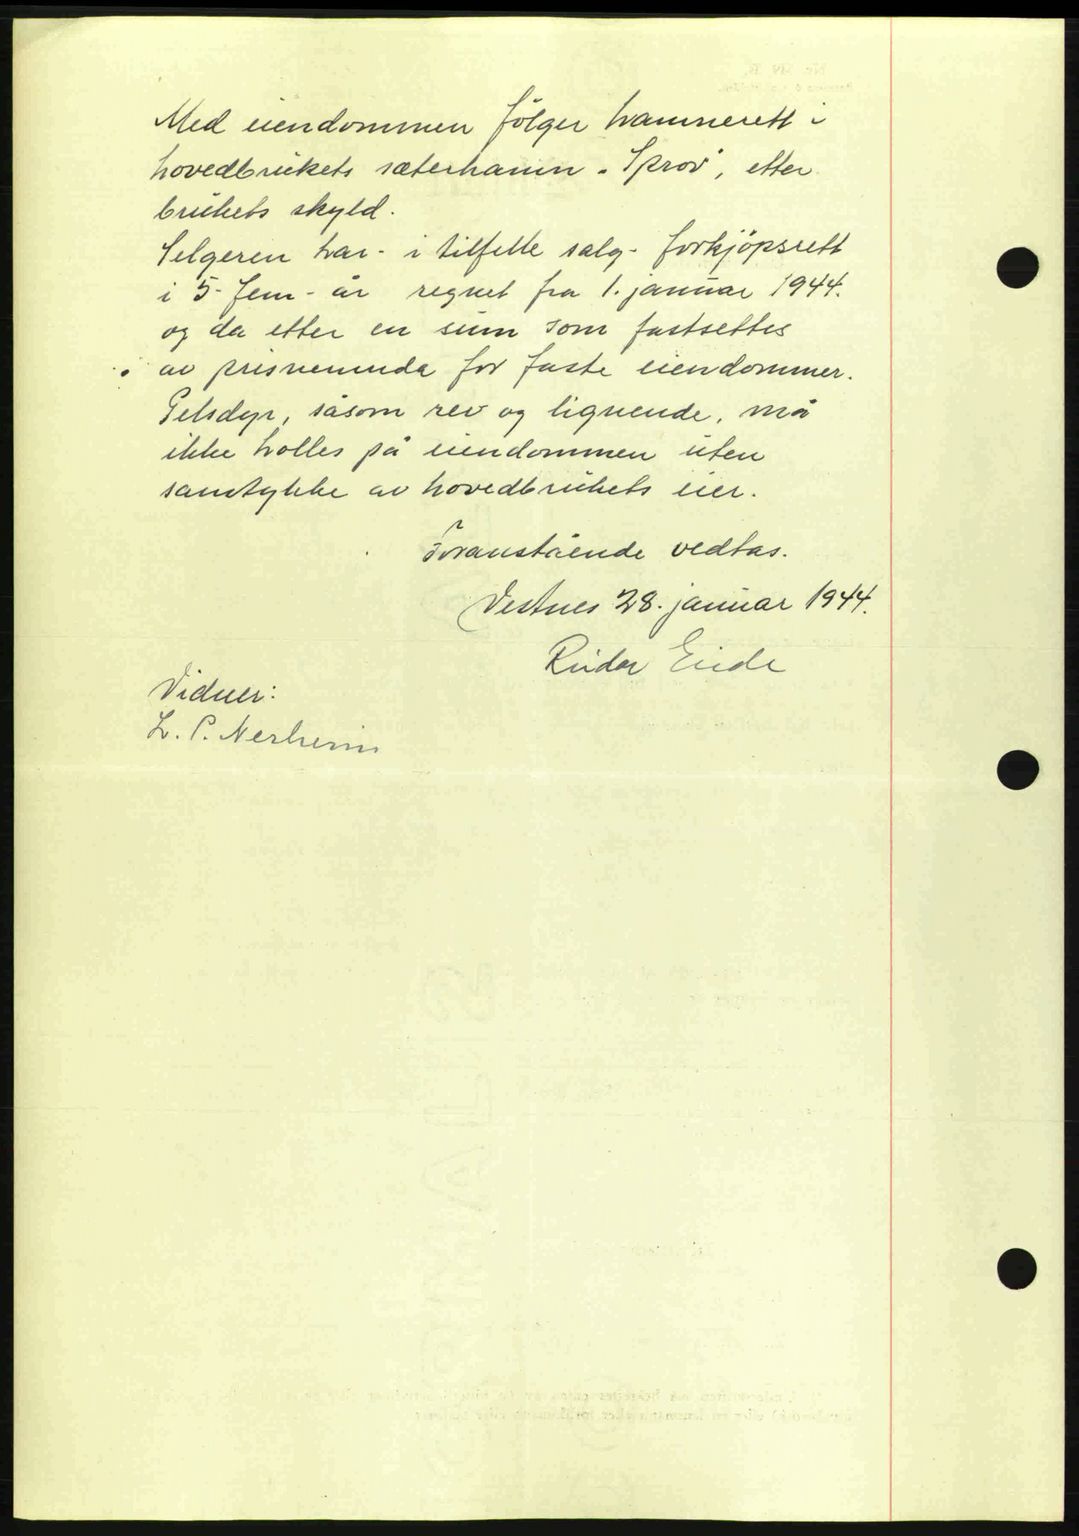 Med eiendommen følger hamnerett i
hovedbrukets sæterhamn „Sprov", etter
brukets skyld.
Selgeren har - i tilfelle salg - forkjöpsrett
i 5 - fem - år regnet fra 1. januar 1944.
og da etter en sum som fastsettes
av prisnemnda for faste eiendommer.
Pelsdyr, såsom rev og lignende, må
ikke holles på eiendommen uten
samtykke av hovedbrukets eier.
Foranstående vedtas.
Vestnes 28. januar 1944.
Reidar Eide
Vidner:
L. P. Nerheim